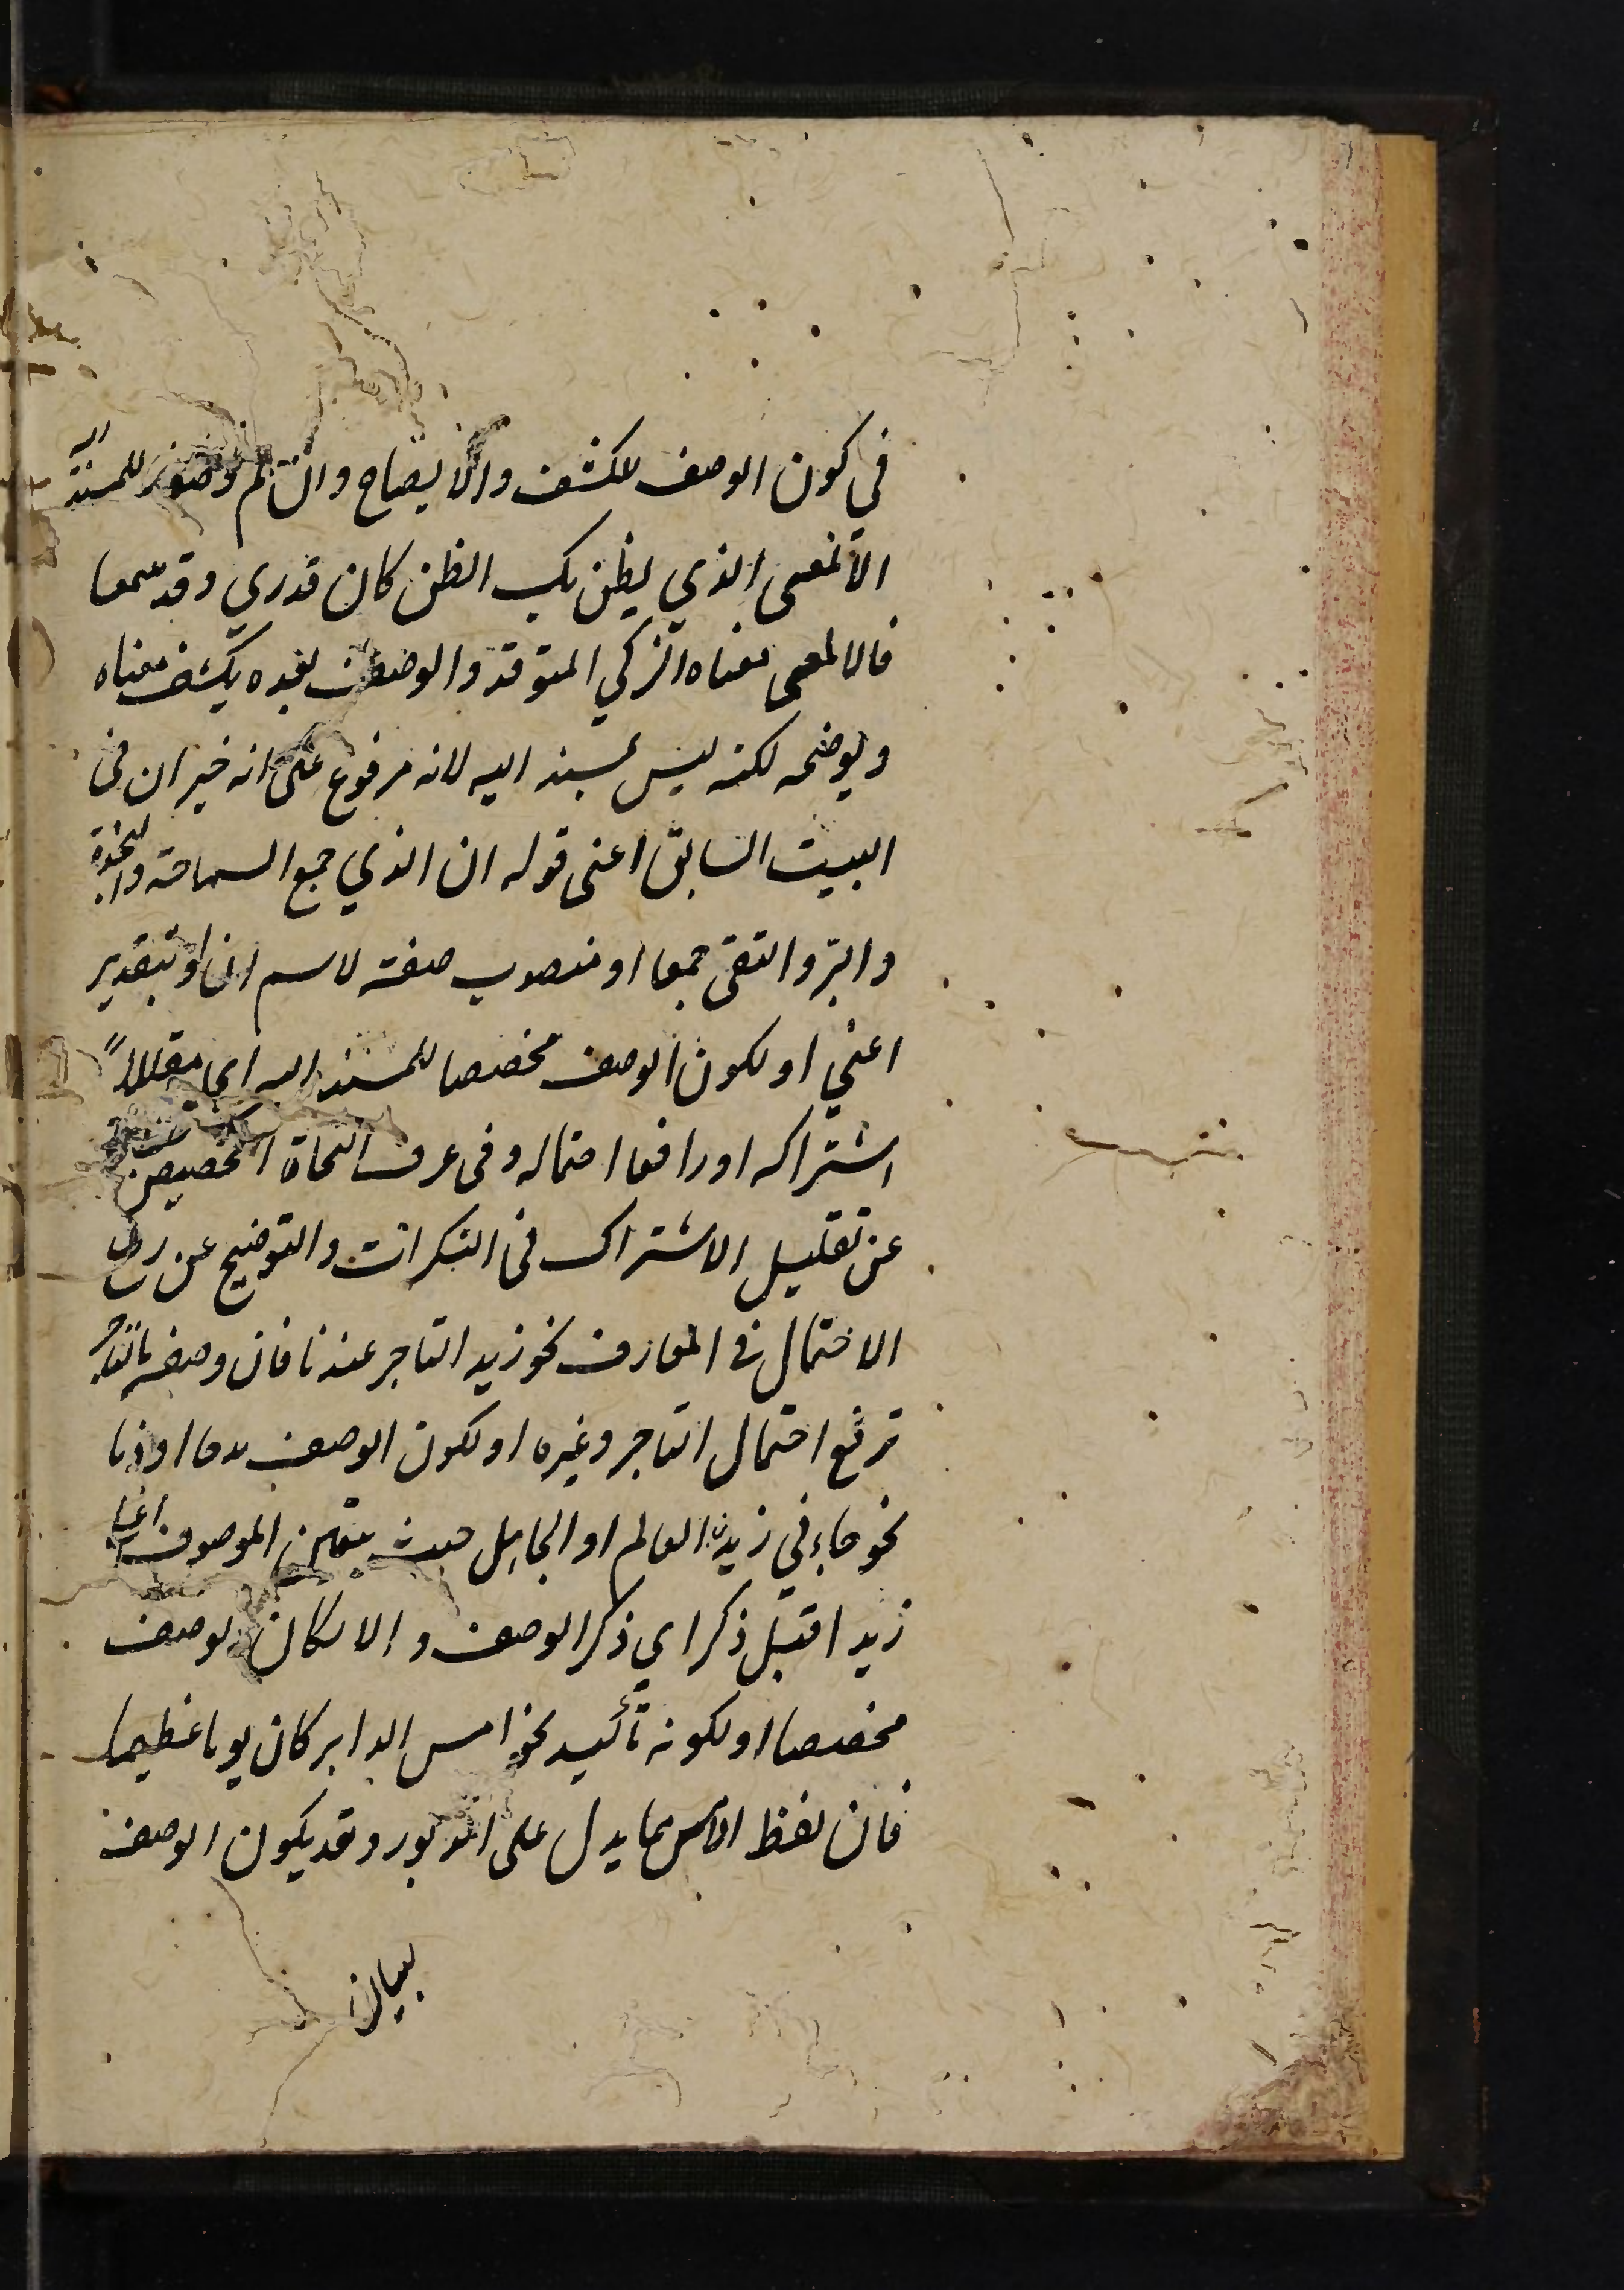 في كون الوصف للكشف والايضاح وان لم وصفا للمسند اليه
الالمعى الذي يظن بك الظن كان قدري وقد سمعا
فالالمعى معناه الذكي المتوقد والوصف بعده يكشف معناه
ويوضحه لكنه ليس بمسند اليه لانه مرفوع على انه خبر ان فى
البيت السابق اعنى قوله ان الذي جمع السماحة والنجدة
والبرّ والتقى جمعا او منصوب صفة لاسم ان او بتقدير
اعني او لكون الوصف مخصصا للمسند اليه اي مقللاً
اشتراكه او رافعا احتماله وفى عرف النحاة التخصيص
عن تقليل الاشتراك فى النكرات والتوضيح عن رفع
الاحتمال فى المعارف نحو زيد التاجر عندنا فان وصفه بالتاجر
ترفع احتمال التاجر وغيره او لكون الوصف مدحا او ذما
نحو جاءني زيد العالم او الجاهل حيث يتعين الموصوف اعنى
زيدا قبل ذكر اي ذكر الوصف والا لكان الوصف
مخصصا او لكونه تأكيد نحو امس الدابر كان يوما عظيما
فان لفظ الامس مما يدل على الدبور وقد يكون الوصف
لبيان